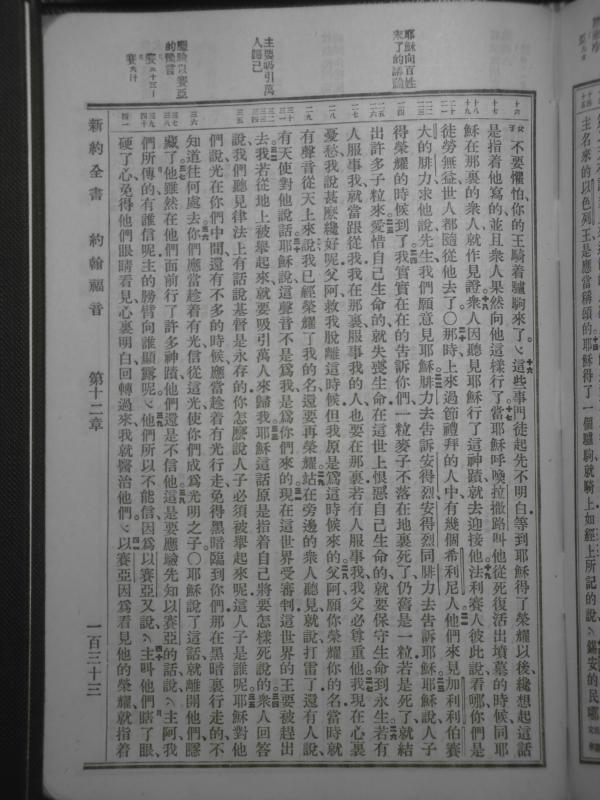 主名來的以色列王是應當稱頌的耶穌得了一個驢駒就騎上如經上所記的說錫安的民哪
耶穌向百姓
來了的講論
主要吸引萬
人歸己
應驗以賽亞
的預言
不要懼怕你的王騎着驢駒來了這些事門徒起先不明白等到耶穌得了榮耀以後纔想起這話
是指着他寫的並且衆人果然向他這樣行了當耶穌呼喚拉撒路叫他從死復活出墳墓的時候同耶
穌在那裏的衆人就作見證衆人因聽見耶穌行了這神蹟就去迎接他法利賽人彼此說看哪你們是
徒勞無益世人都隨從他去了〇那時上來過節禮拜的人中有幾個希利尼人他們來見加利利伯賽
大的腓力求他說先生我們願意見耶穌腓力去告訴安得烈安得烈同腓力去告訴耶穌耶穌說人子
得榮耀的時候到了我實實在在的告訴你們一粒麥子不落在地裏死了仍舊是一粒若是死了就結
出許多子粒來愛惜自己生命的就失喪生命在這世上恨惡自己生命的就要保守生命到永生若有
人服事我就當跟從我我在那裏服事我的人也要在那裏若有人服事我我父必尊重他我現在心裏
憂愁我說甚麼纔好呢父阿救我脫離這時候但我原是爲這時候來的父阿願你榮耀你的名當時就
有聲音從天上來說我已經榮耀了我的名還要再榮耀站在旁邊的衆人聽見就說打雷了還有人說
有天使對他說話耶穌說這聲音不是爲我是爲你們來的現在這世界受審判這世界的王要被趕出
去我若從地上被舉起來就要吸引萬人來歸我耶穌這話原是指着自己將要怎樣死說的衆人回答
說我們聽見律法上有話說基督是永存的你怎麼說人子必須被舉起來呢這人子是誰呢耶穌對他
們說光在你們中間還有不多的時候應當趁着有光行走免得黑暗臨到你們那在黑暗裏行走的不
知道往何處去你們應當趁着有光信從這光使你們成爲光明之子〇耶穌說了這話就離開他們隱
藏了他雖然在他們面前行了許多神蹟他們還是不信他這是要應驗先知以賽亞的話說主阿我
們所傳的有誰信呢主的膀臂向誰顯露呢他們所以不能信因爲以賽亞又說主叫他們瞎了眼
硬了心免得他們眼睛看見心裏明白回轉過來我就醫治他們以賽亞因爲看見他的榮耀就指着
新約全書 約翰福音 第十二章 一百三十三